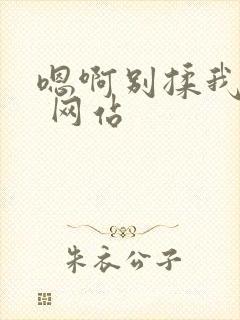 嗯啊别揉我
网站
朱衣公子